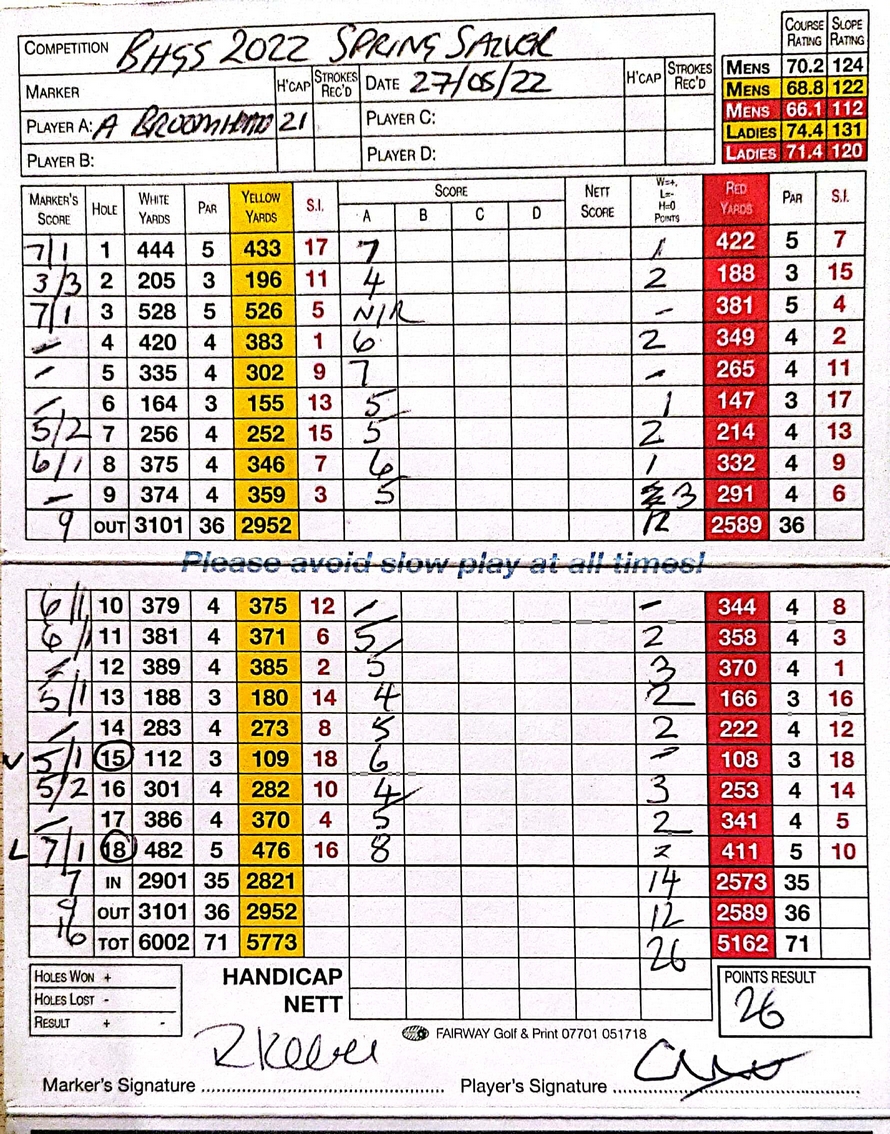 COMPETITION BHGS 2022 SPRING SALVER
COURSE RATING SLOPE RATING
MENS 70.2 124
MENS 68.8 122
MENS 66.1 112
LADIES 74.4 131
LADIES 71.4 120
MARKER H'CAP STROKES REC'D DATE 27/05/22 H'CAP STROKES REC'D
PLAYER A: A BROOMHEAD 21 PLAYER C:
PLAYER B: PLAYER D:
MARKER'S SCORE HOLE WHITE YARDS PAR YELLOW YARDS S.I. SCORE A B C D NETT SCORE W=+, L=- H=0 POINTS RED YARDS PAR S.I.
7/1 1 444 5 433 17 7 1 422 5 7
3/3 2 205 3 196 11 4 2 188 3 15
7/1 3 528 5 526 5 N/R - 381 5 4
- 4 420 4 383 1 6 2 349 4 2
- 5 335 4 302 9 7 - 265 4 11
- 6 164 3 155 13 5 1 147 3 17
5/2 7 256 4 252 15 5 2 214 4 13
6/1 8 375 4 346 7 6 1 332 4 9
- 9 374 4 359 3 5 3 291 4 6
9 OUT 3101 36 2952 12 2589 36
Please avoid slow play at all times!
6/1 10 379 4 375 12 - - 344 4 8
6/1 11 381 4 371 6 5 2 358 4 3
- 12 389 4 385 2 5 3 370 4 1
5/1 13 188 3 180 14 4 2 166 3 16
- 14 283 4 273 8 5 2 222 4 12
V 5/1 15 112 3 109 18 6 - 108 3 18
5/2 16 301 4 282 10 4 3 253 4 14
- 17 386 4 370 4 5 2 341 4 5
L 7/1 18 482 5 476 16 8 - 411 5 10
7 IN 2901 35 2821 14 2573 35
9 OUT 3101 36 2952 12 2589 36
16 TOT 6002 71 5773 26 5162 71
HOLES WON +
HOLES LOST -
RESULT + -
HANDICAP
NETT
POINTS RESULT
26
FAIRWAY Golf & Print 07701 051718
Marker's Signature
Player's Signature